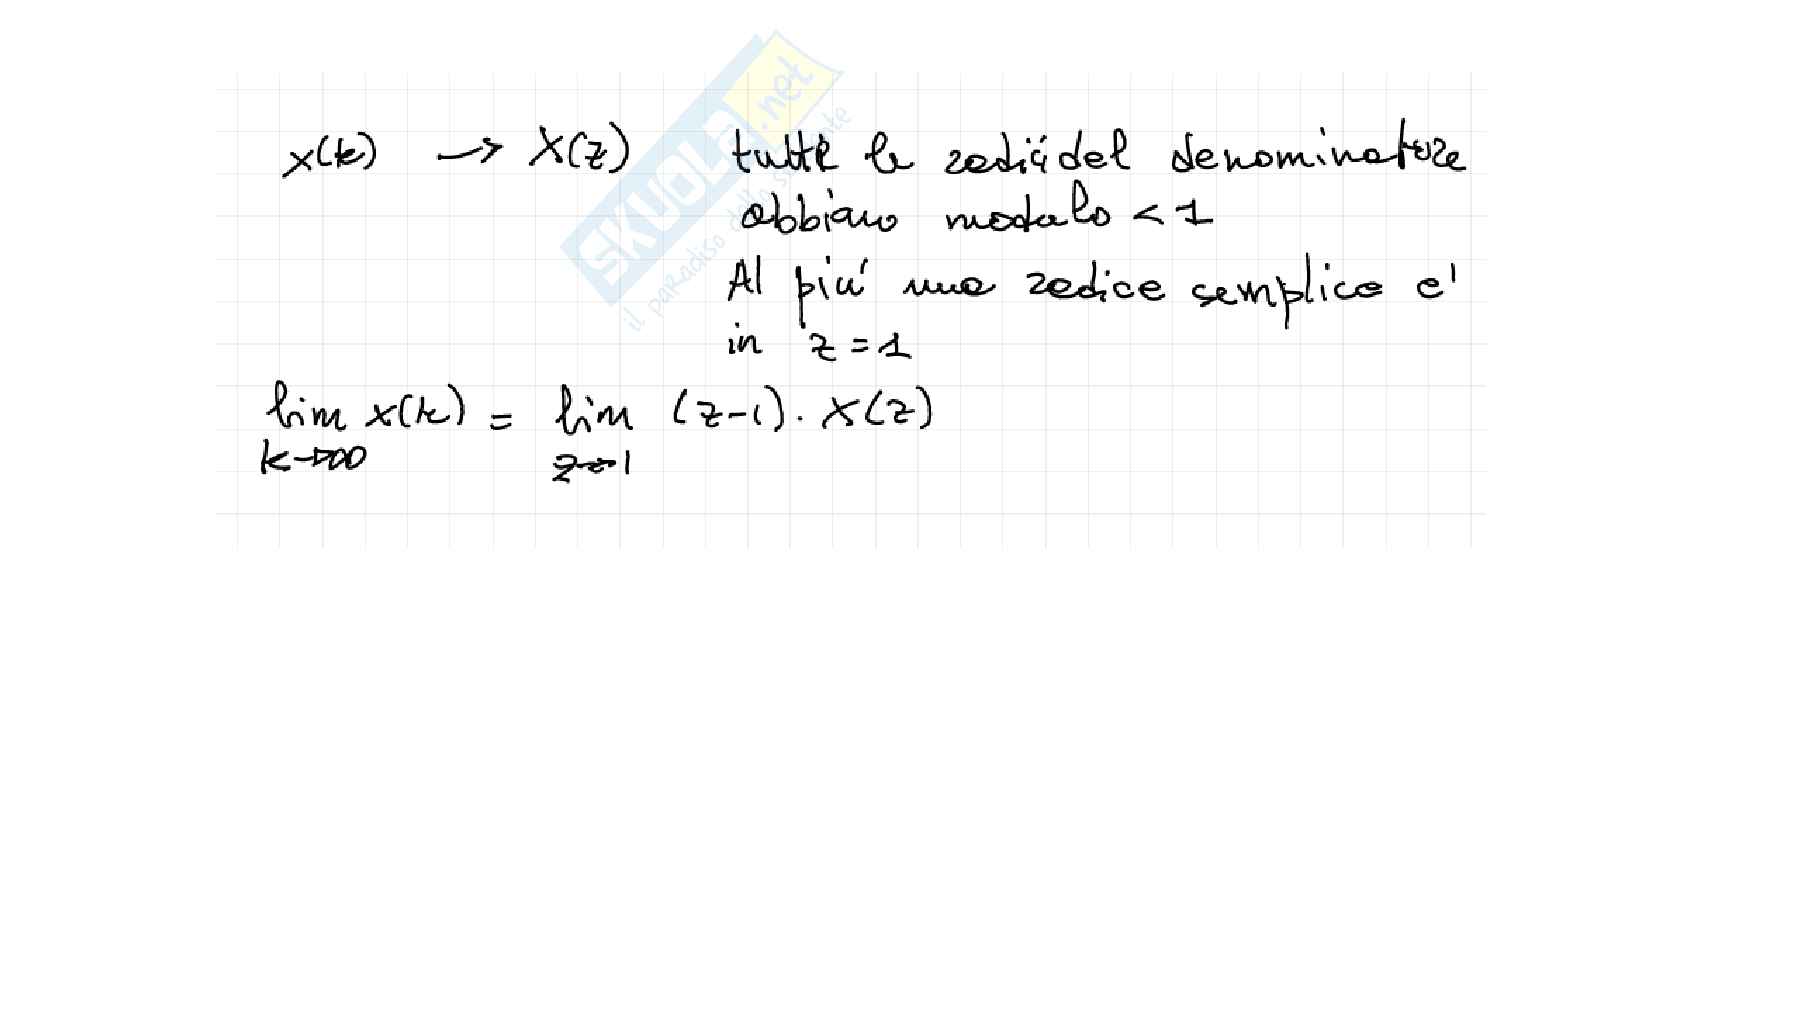 SKUOLA.net
il paradiso dello studente
x(k) → X(z) tutte le radici del denominatore
abbiano modulo < 1
Al piu' una radice semplice e'
in z = 1
lim x(k) = lim (z-1) · X(z)
k→∞ z→1